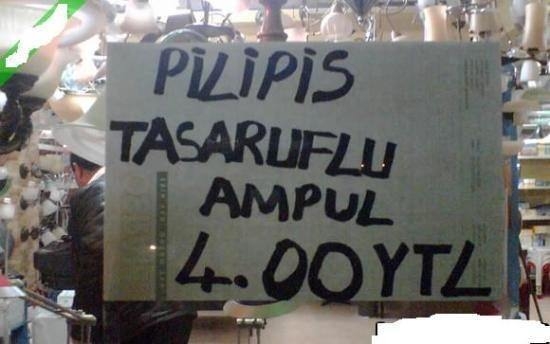 PiLiPiS
TASARUFLU
AMPUL
4.00YTL